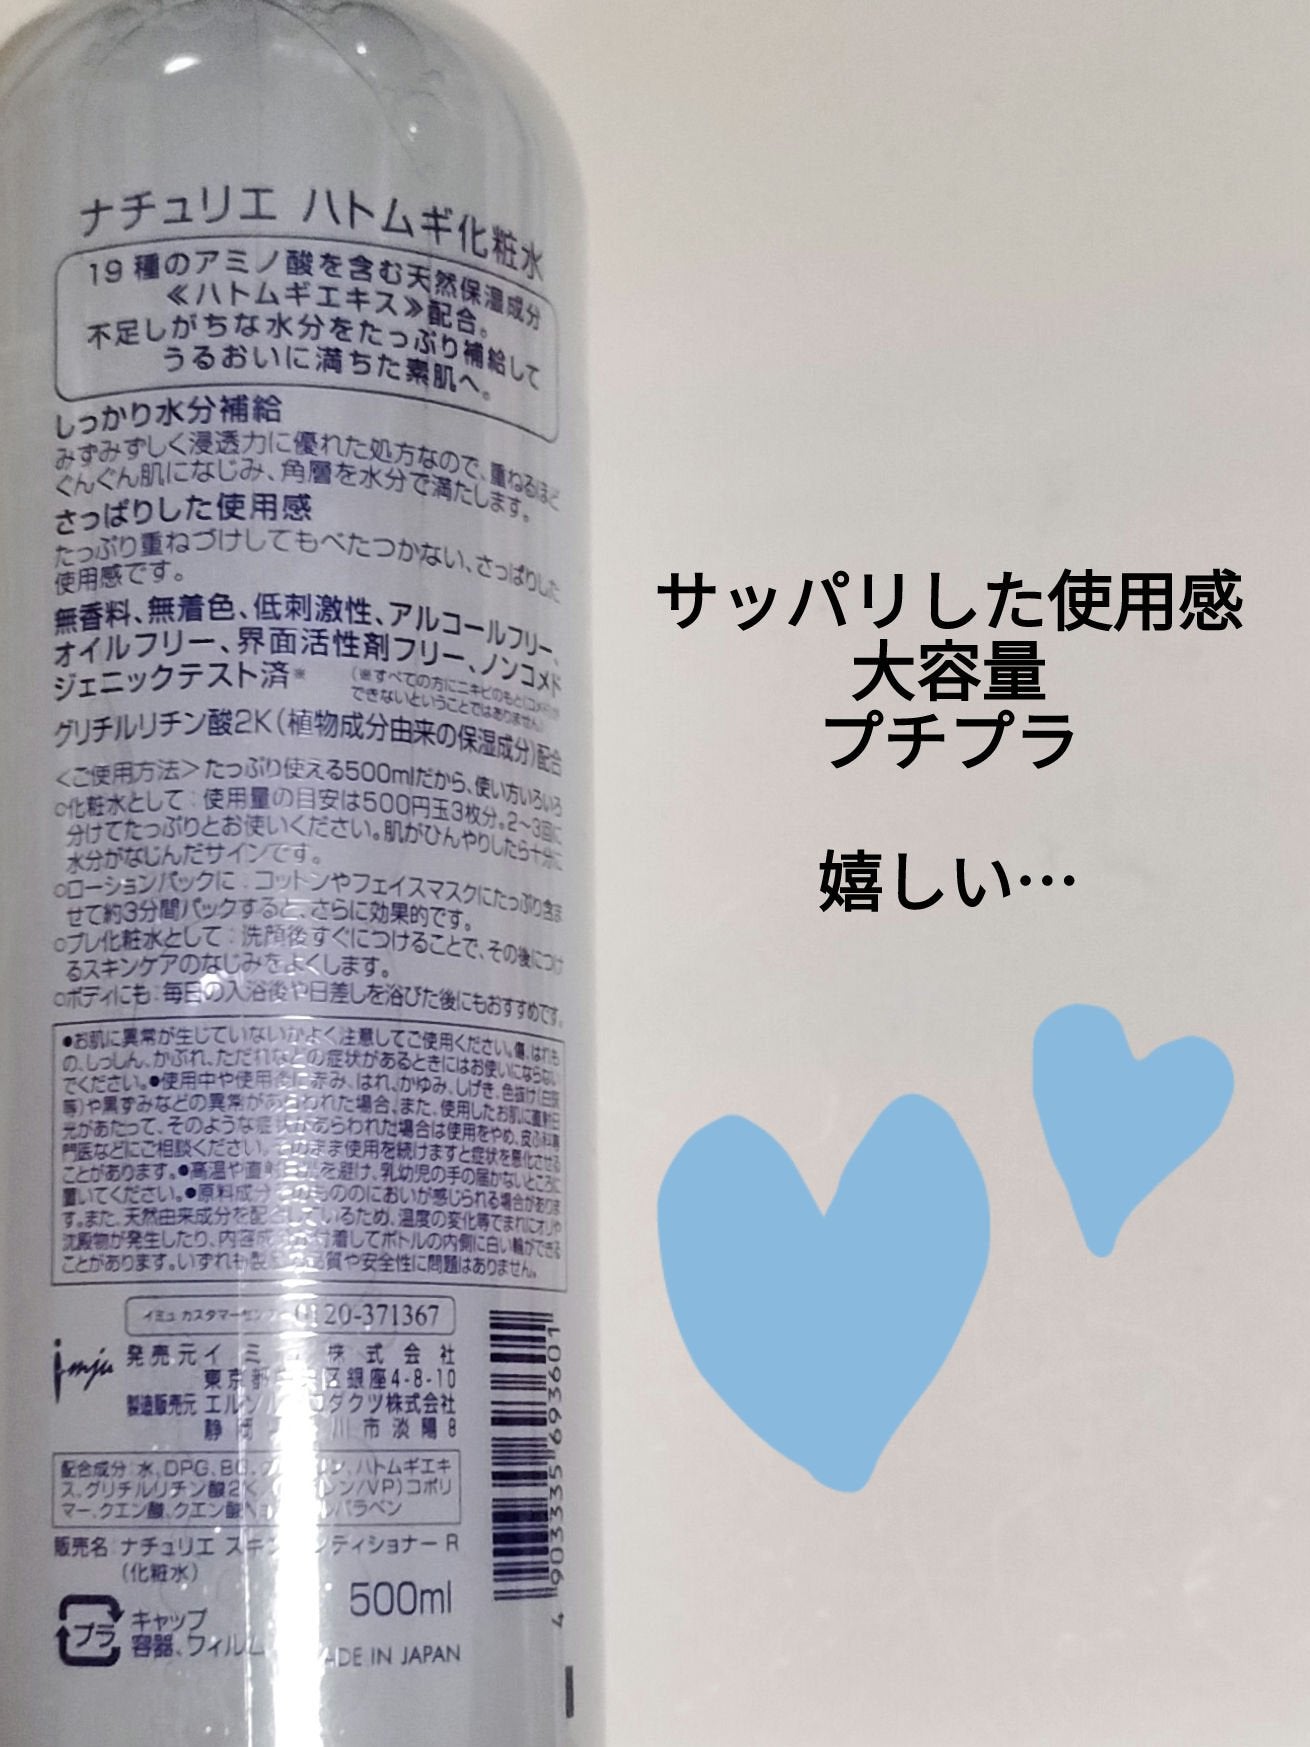 ナチュリエ ハトムギ化粧水
19種のアミノ酸を含む天然保湿成分
≪ハトムギエキス≫配合。
不足しがちな水分をたっぷり補給して
うるおいに満ちた素肌へ。
しっかり水分補給
みずみずしく浸透力に優れた処方なので、重ねるほど
ぐんぐん肌になじみ、角層を水分で満たします。
さっぱりした使用感
たっぷり重ねづけしてもべたつかない、さっぱりした
使用感です。
無香料、無着色、低刺激性、アルコールフリー、
オイルフリー、界面活性剤フリー、ノンコメド
ジェニックテスト済※
(※すべての方にニキビのもと(コメド)が
できないということではありません)
グリチルリチン酸2K(植物成分由来の保湿成分)配合
<ご使用方法>たっぷり使える500mlだから、使い方いろいろ
○化粧水として:使用量の目安は500円玉3枚分。2~3回に
分けてたっぷりとお使いください。肌がひんやりしたら十分に
水分がなじんだサインです。
○ローションパックに:コットンやフェイスマスクにたっぷり含ま
せて約3分間パックすると、さらに効果的です。
○プレ化粧水として:洗顔後すぐにつけることで、その後につけ
るスキンケアのなじみをよくします。
○ボディにも:毎日の入浴後や日差しを浴びた後にもおすすめです。
●お肌に異常が生じていないかよく注意してご使用ください。傷、はれも
の、しっしん、かぶれ、ただれなどの症状があるときにはお使いにならない
でください。●使用中や使用後に赤み、はれ、かゆみ、しげき、色抜け(白斑
等)や黒ずみなどの異常があらわれた場合、また、使用したお肌に直射日
光があたって、そのような症状があらわれた場合は使用をやめ、皮ふ科専
門医などにご相談ください。そのまま使用を続けますと症状を悪化させる
ことがあります。●高温や直射日光を避け、乳幼児の手の届かないところに
置いてください。●原料成分そのもののにおいが感じられる場合がありま
す。また、天然由来成分を配合しているため、温度の変化等でまれにオリや
沈殿物が発生したり、内容成分が付着してボトルの内側に白い輪ができる
ことがあります。いずれも製品の品質や安全性に問題はありません。
イミュ カスタマーセンター 0120-371367
imju 発売元 イミュ株式会社
東京都中央区銀座4-8-10
製造販売元 エルソルプロダクツ株式会社
静 川市淡陽8
配合成分:水、DPG、BG、グリセリン、ハトムギエキ
ス、グリチルリチン酸2K、 /VP)コポリ
マー、クエン酸、クエン酸 パラベン
販売名:ナチュリエ スキンコンディショナー R
(化粧水)
500ml
プラ
キャップ
容器、フィルム
MADE IN JAPAN
4903335693601
サッパリした使用感
大容量
プチプラ
嬉しい…